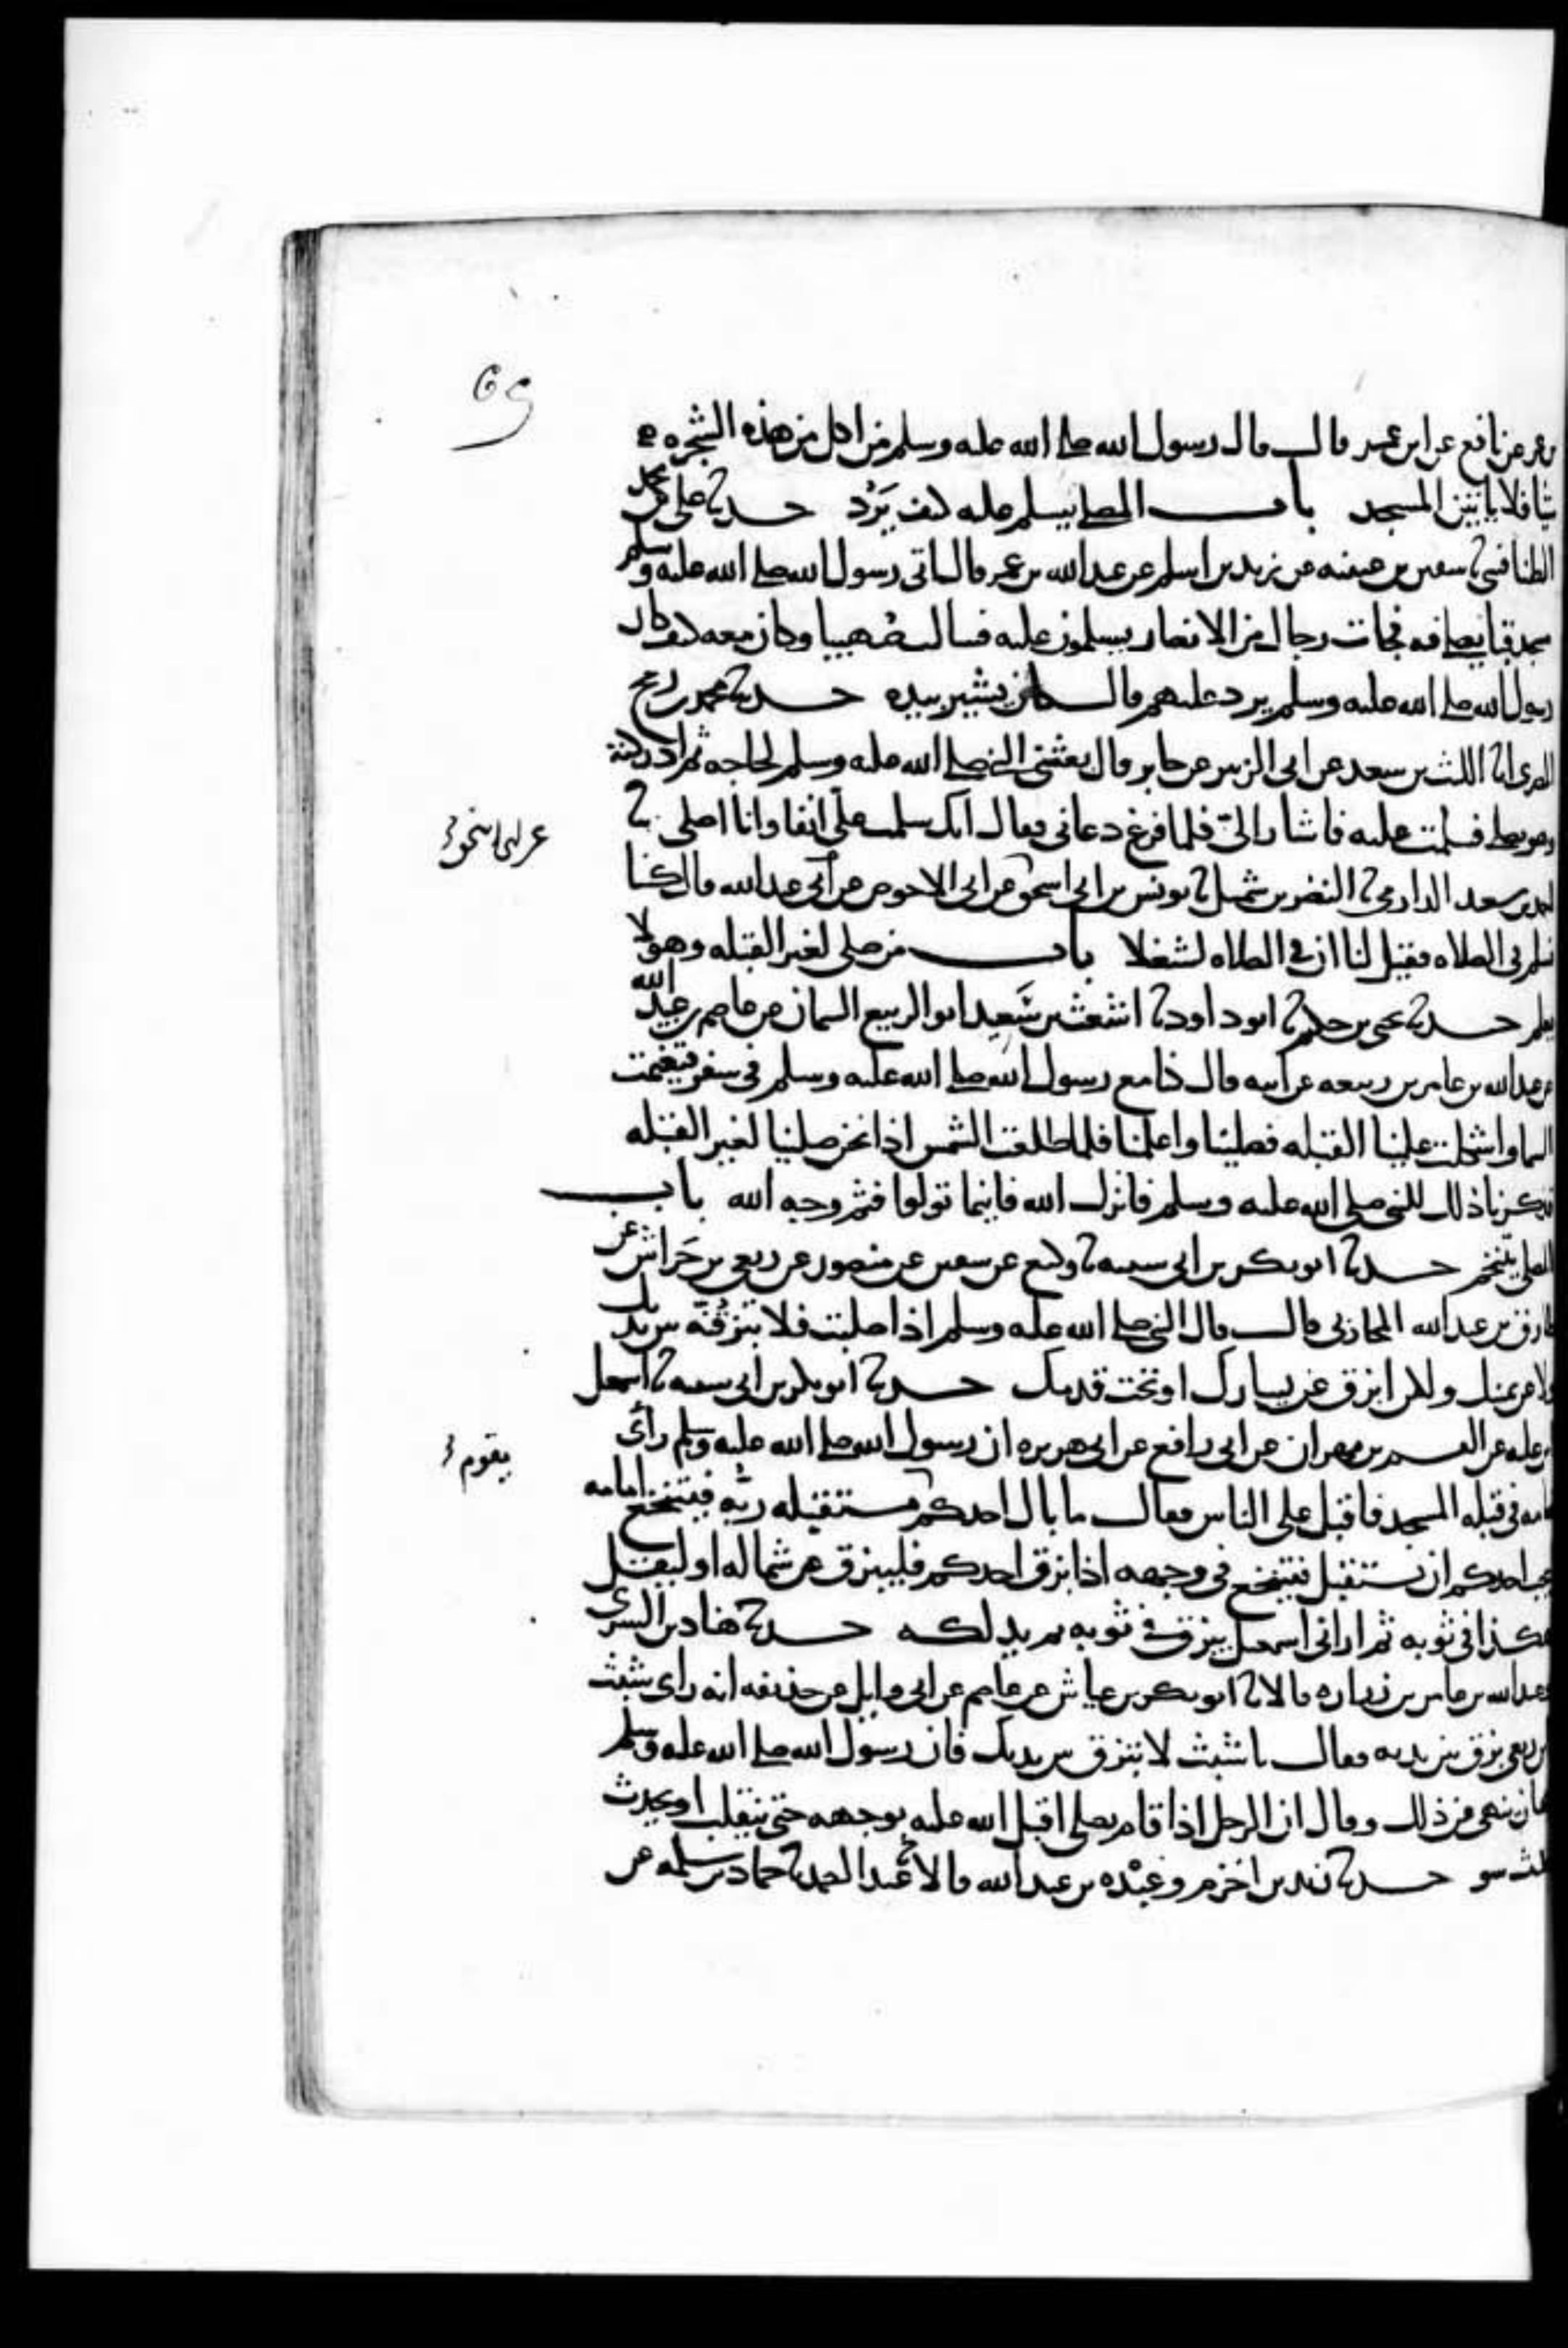 عن نافع عن ابن عمر قال قال رسول الله صلى الله عليه وسلم من اكل من هذه الشجره
شيا فلا ياتين المسجد باب المصلي يسلم عليه كيف يرد حدثنا علي بن محمد
الطنافسي ثنا سفين بن عيينه عن زيد بن اسلم عن عبد الله بن عمر قال اتى رسول الله صلى الله عليه وسلم
مسجد قبا يصلي فيه فجات رجال من الانصار يسلمون عليه فسالت صهيبا وكان معه كيف كان
رسول الله صلى الله عليه وسلم يرد عليهم قال كان يشير بيده حدثنا محمد بن رمح
المصري انا الليث بن سعد عن ابي الزبير عن جابر قال بعثني النبي صلى الله عليه وسلم لحاجه ثم ادركته
وهو يصلي فسلمت عليه فاشار الي فلما فرغ دعاني فقال انك سلمت علي انفا وانا اصلي ثنا
احمد بن سعيد الدارمي ثنا النضر بن شميل ثنا يونس بن ابي اسحق عن ابي الاحوص عن ابي عبد الله قال كنا
نسلم في الصلاه فقيل لنا ان في الصلاه لشغلا باب من صلى لغير القبله وهو لا
يعلم حدثنا يحيى بن حكيم ثنا ابو داود ثنا اشعث بن سَعيد ابو الربيع السمان عن عاصم بن عبيد الله
عن عبد الله بن عامر بن ربيعه عن ابيه قال كنا مع رسول الله صلى الله عليه وسلم في سفر فتغيمت
السما واشكلت علينا القبله فصلينا واعلمنا فلما طلعت الشمس اذا نحن صلينا لغير القبله
فذكرنا ذلك للنبي صلى الله عليه وسلم فانزل الله فاينما تولوا فثم وجه الله باب
المصلي يتنخم حدثنا ابو بكر بن ابي شيبه ثنا وكيع عن سفين عن منصور عن ربعي بن حراش عن
طارق بن عبد الله المحاربي قال قال النبي صلى الله عليه وسلم اذا صليت فلا تبزقن بين يديك
ولا عن يمينك ولكن ابزق عن يسارك او تحت قدمك حدثنا ابو بكر بن ابي شيبه ثنا اسمعيل
بن عليه عن القسم بن مهران عن ابي رافع عن ابي هريره ان رسول الله صلى الله عليه وسلم راى
نخامه في قبله المسجد فاقبل على الناس فقال ما بال احدكم مستقبله ربه فيتنخع امامه
ايحب احدكم ان يستقبل فيتنخع في وجهه اذا بزق احدكم فليبزق عن شماله او ليقل
هكذا في ثوبه ثم اراني اسمعيل يبزق في ثوبه ثم يدلكه حدثنا هناد بن السري
وعبد الله بن عامر بن زراره قالا ثنا ابو بكر بن عياش عن عاصم عن ابي وايل عن حذيفه انه راى شبث
بن ربعي بزق بين يديه فقال يا شبث لا تبزق بين يديك فان رسول الله صلى الله عليه وسلم
كان ينهى عن ذلك وقال ان الرجل اذا قام يصلي اقبل الله عليه بوجهه حتى ينقلب او يحدث
حدث سو حدثنا زيد بن اخزم وعبده بن عبد الله قالا ثنا عبد الصمد ثنا حماد بن سلمه عن
عن ابي اسحق
يقوم